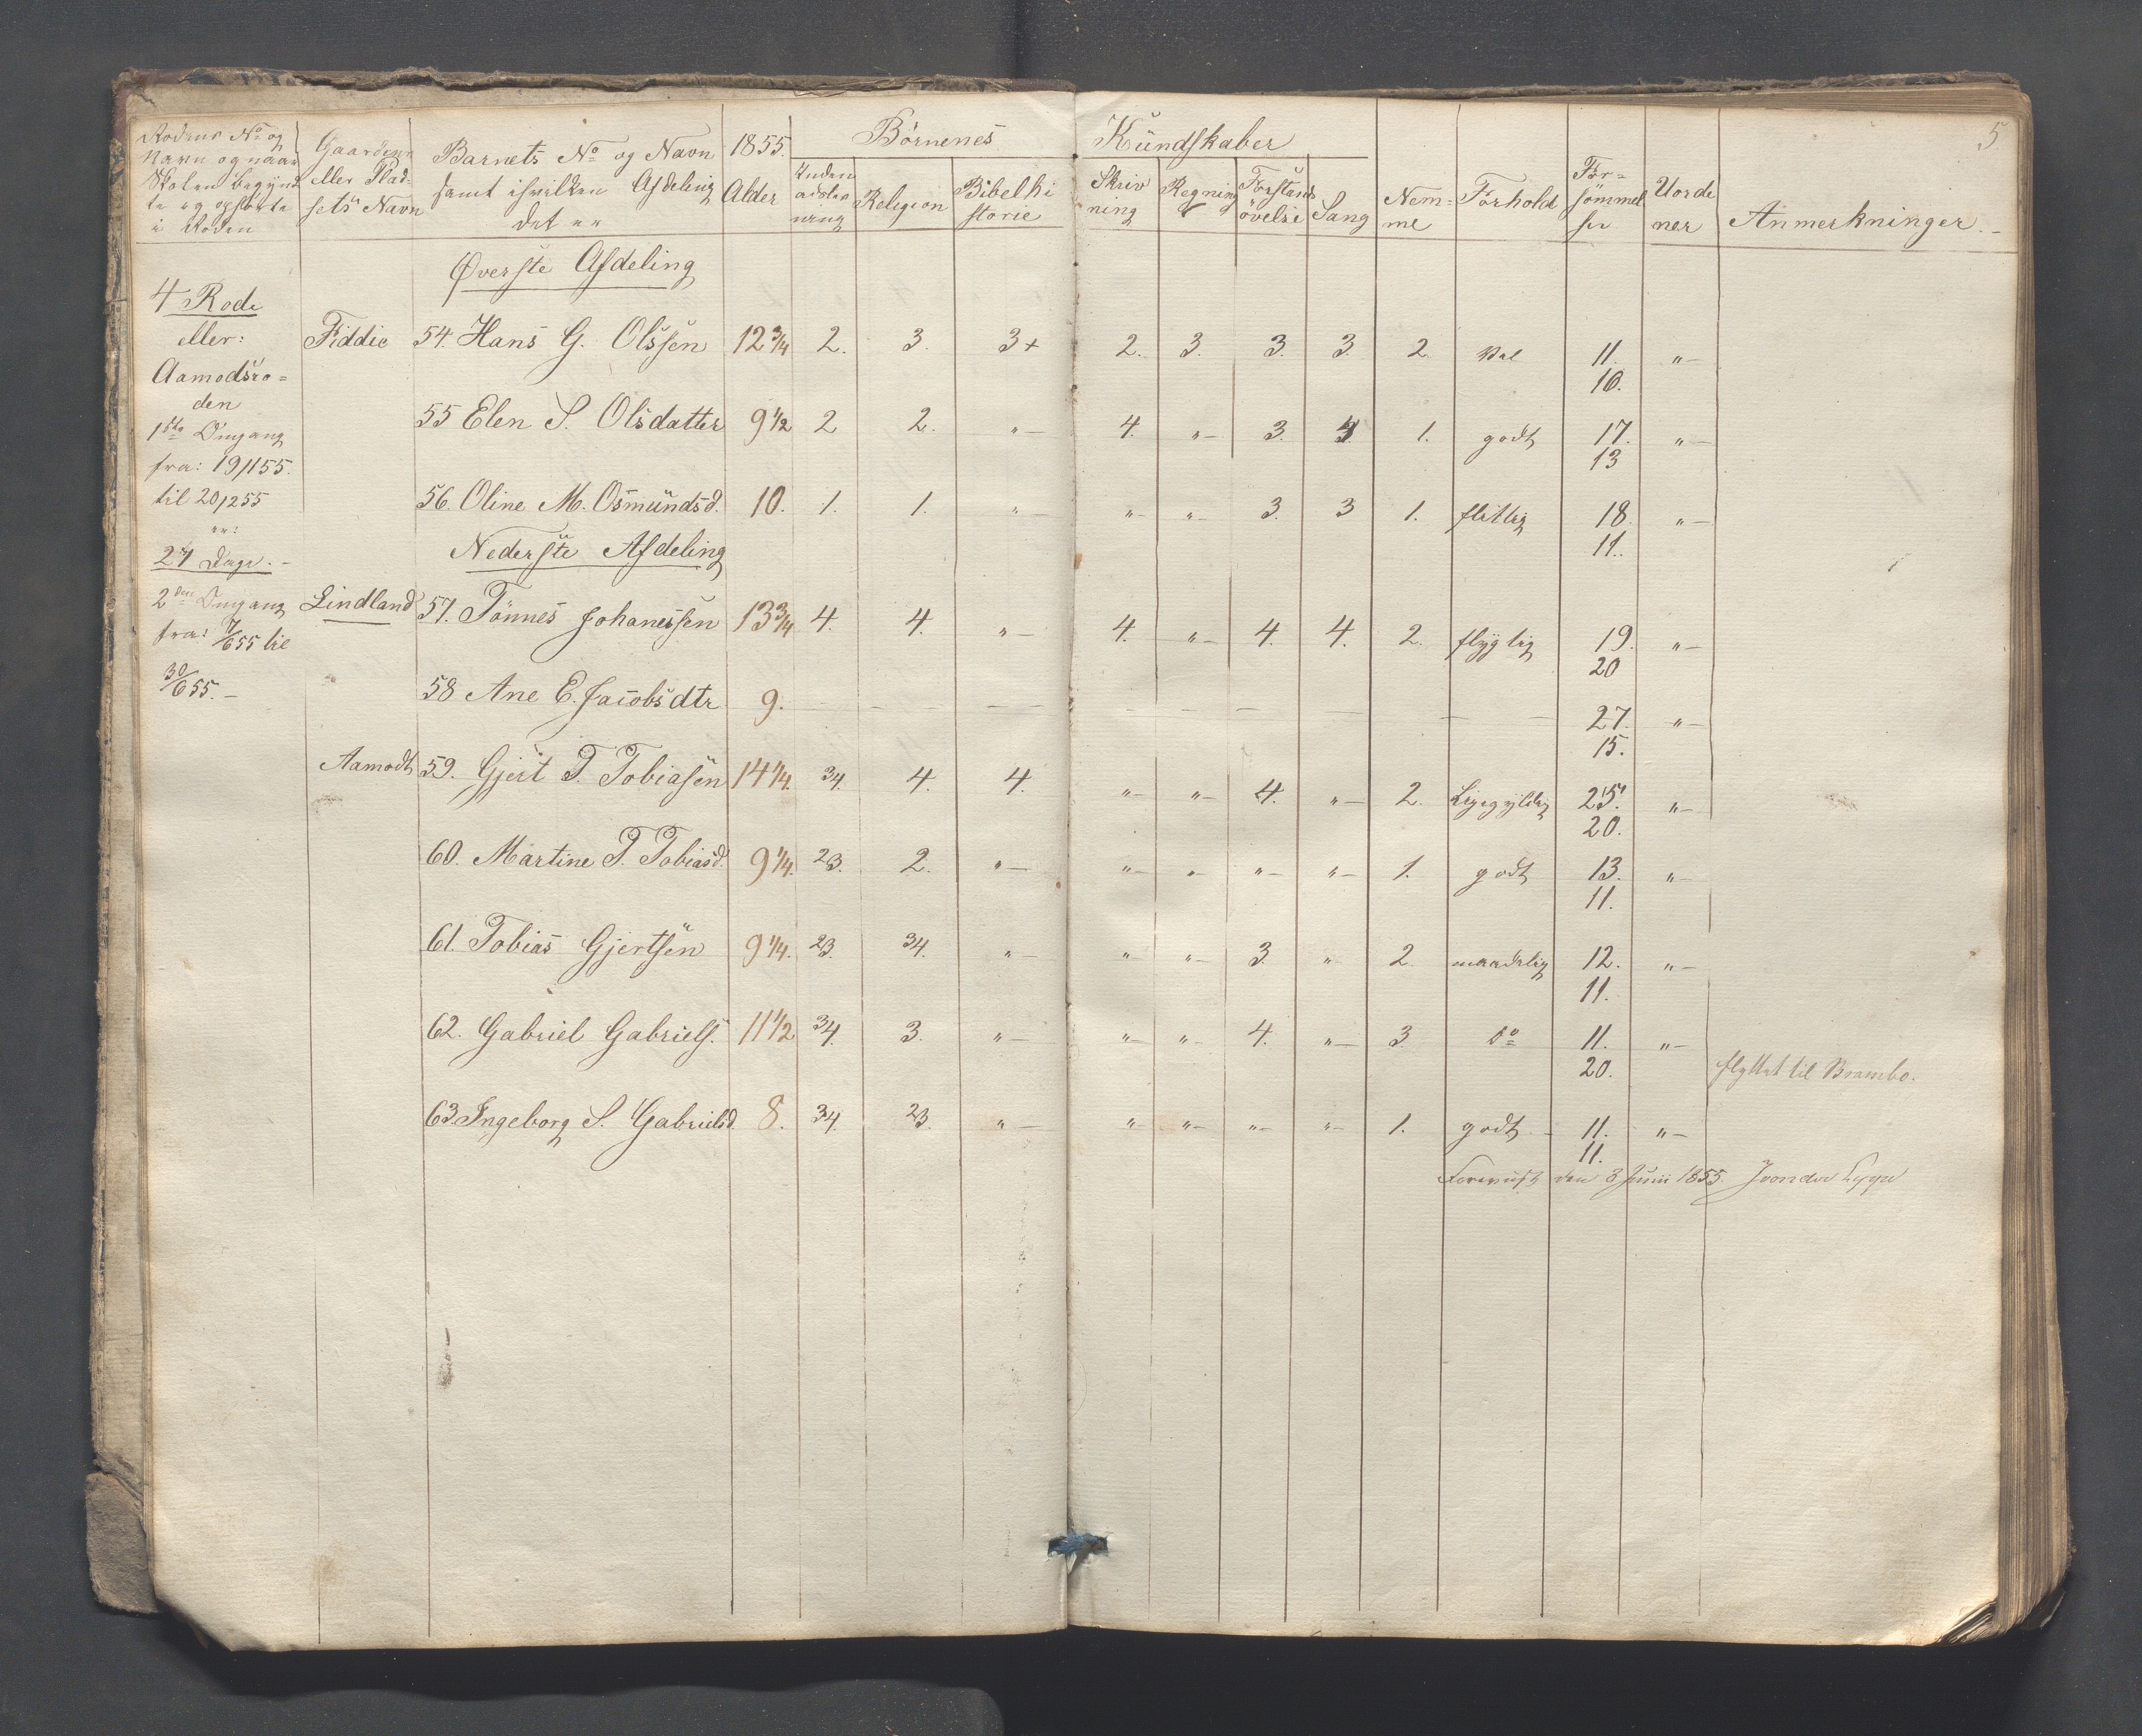 5
Rodens No og Navn og naar Skolen begynd te og opførte i Roden | Gaardens eller Plad= sets Navn | Barnets No og Navn samt ihvilken Afdeling det er | 1855. Alder | Børnenes Kundskaber | Religion | Bibelhi storie | Skriv ning | Regning | Forstands øvelse | Sang | Nem= me | Forhold | For= sømmel ser | Uorde ner | Anmerkninger.
Øverste Afdeling
4 Rode
eller: | Fiddie | 54. Hans G. Olssen | 12 3/4 | 2. | 3. | 3+ | 2. | 3. | 3. | 3. | 2. | Vel | 11. | "
Aamodsro= | 10.
den
1ste Omgang | 55 Elen S. Olsdatter | 9 1/2 | 2 | 2. | " | 4. | " | 3. | 4. | 1. | godt | 17. | "
fra: 19/155. | 13
til 20/255 | 56. Oline M. Osmundsd. | 10. | 1. | 1. | " | " | " | 3. | 3 | 1. | flittig | 18. | "
er: | 11.
27 Dage. | Nederste Afdeling
2den Omgang | Lindland | 57. Tønnes Johanessen | 13 3/4 | 4. | 4. | " | 4. | " | 4. | 4. | 2. | flygtig | 19. | "
fra: 7/655 til | 20
30/655. | 58 Ane E. Jacobsdtr | 9. | 27. | "
15.
Aamodt | 59. Gjert T. Tobiasen | 14 1/4. | 34. | 4. | 4. | " | " | 4. | " | 2. | Ligegyldig | 25. | "
20.
60. Martine T. Tobiasd. | 9 1/4. | 23. | 2. | " | " | " | " | " | 1. | godt | 13. | "
11.
61. Tobias Gjertsen | 9 1/4. | 23. | 34. | " | " | " | 3. | " | 2. | maadelig | 12. | "
11.
62. Gabriel Gabriels. | 11 1/2 | 34. | 3. | " | " | " | 4. | " | 3. | do | 11. | "
20. | flyttet til Brambo.
63. Ingeborg S. Gabrielsd. | 8. | 34. | 23. | " | " | " | " | " | 1. | godt | 11. | "
11.
Foreviist den 8 Junii 1855